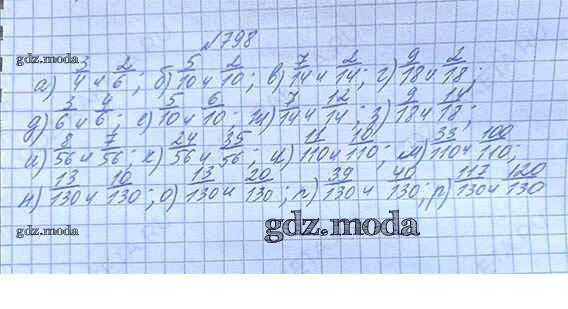 №798
gdz.moda
а) 3/4 и 2/6; б) 5/10 и 2/10; в) 7/14 и 2/14; г) 9/18 и 2/18;
д) 3/6 и 4/6; е) 5/10 и 6/10; ж) 7/14 и 12/14; з) 9/18 и 14/18;
и) 8/56 и 7/56; к) 24/56 и 35/56; л) 11/110 и 10/110; м) 33/110 и 100/110;
н) 13/130 и 10/130; о) 13/130 и 20/130; п) 39/130 и 40/130; р) 117/130 и 120/130
gdz.moda
gdz.moda
gdz.moda